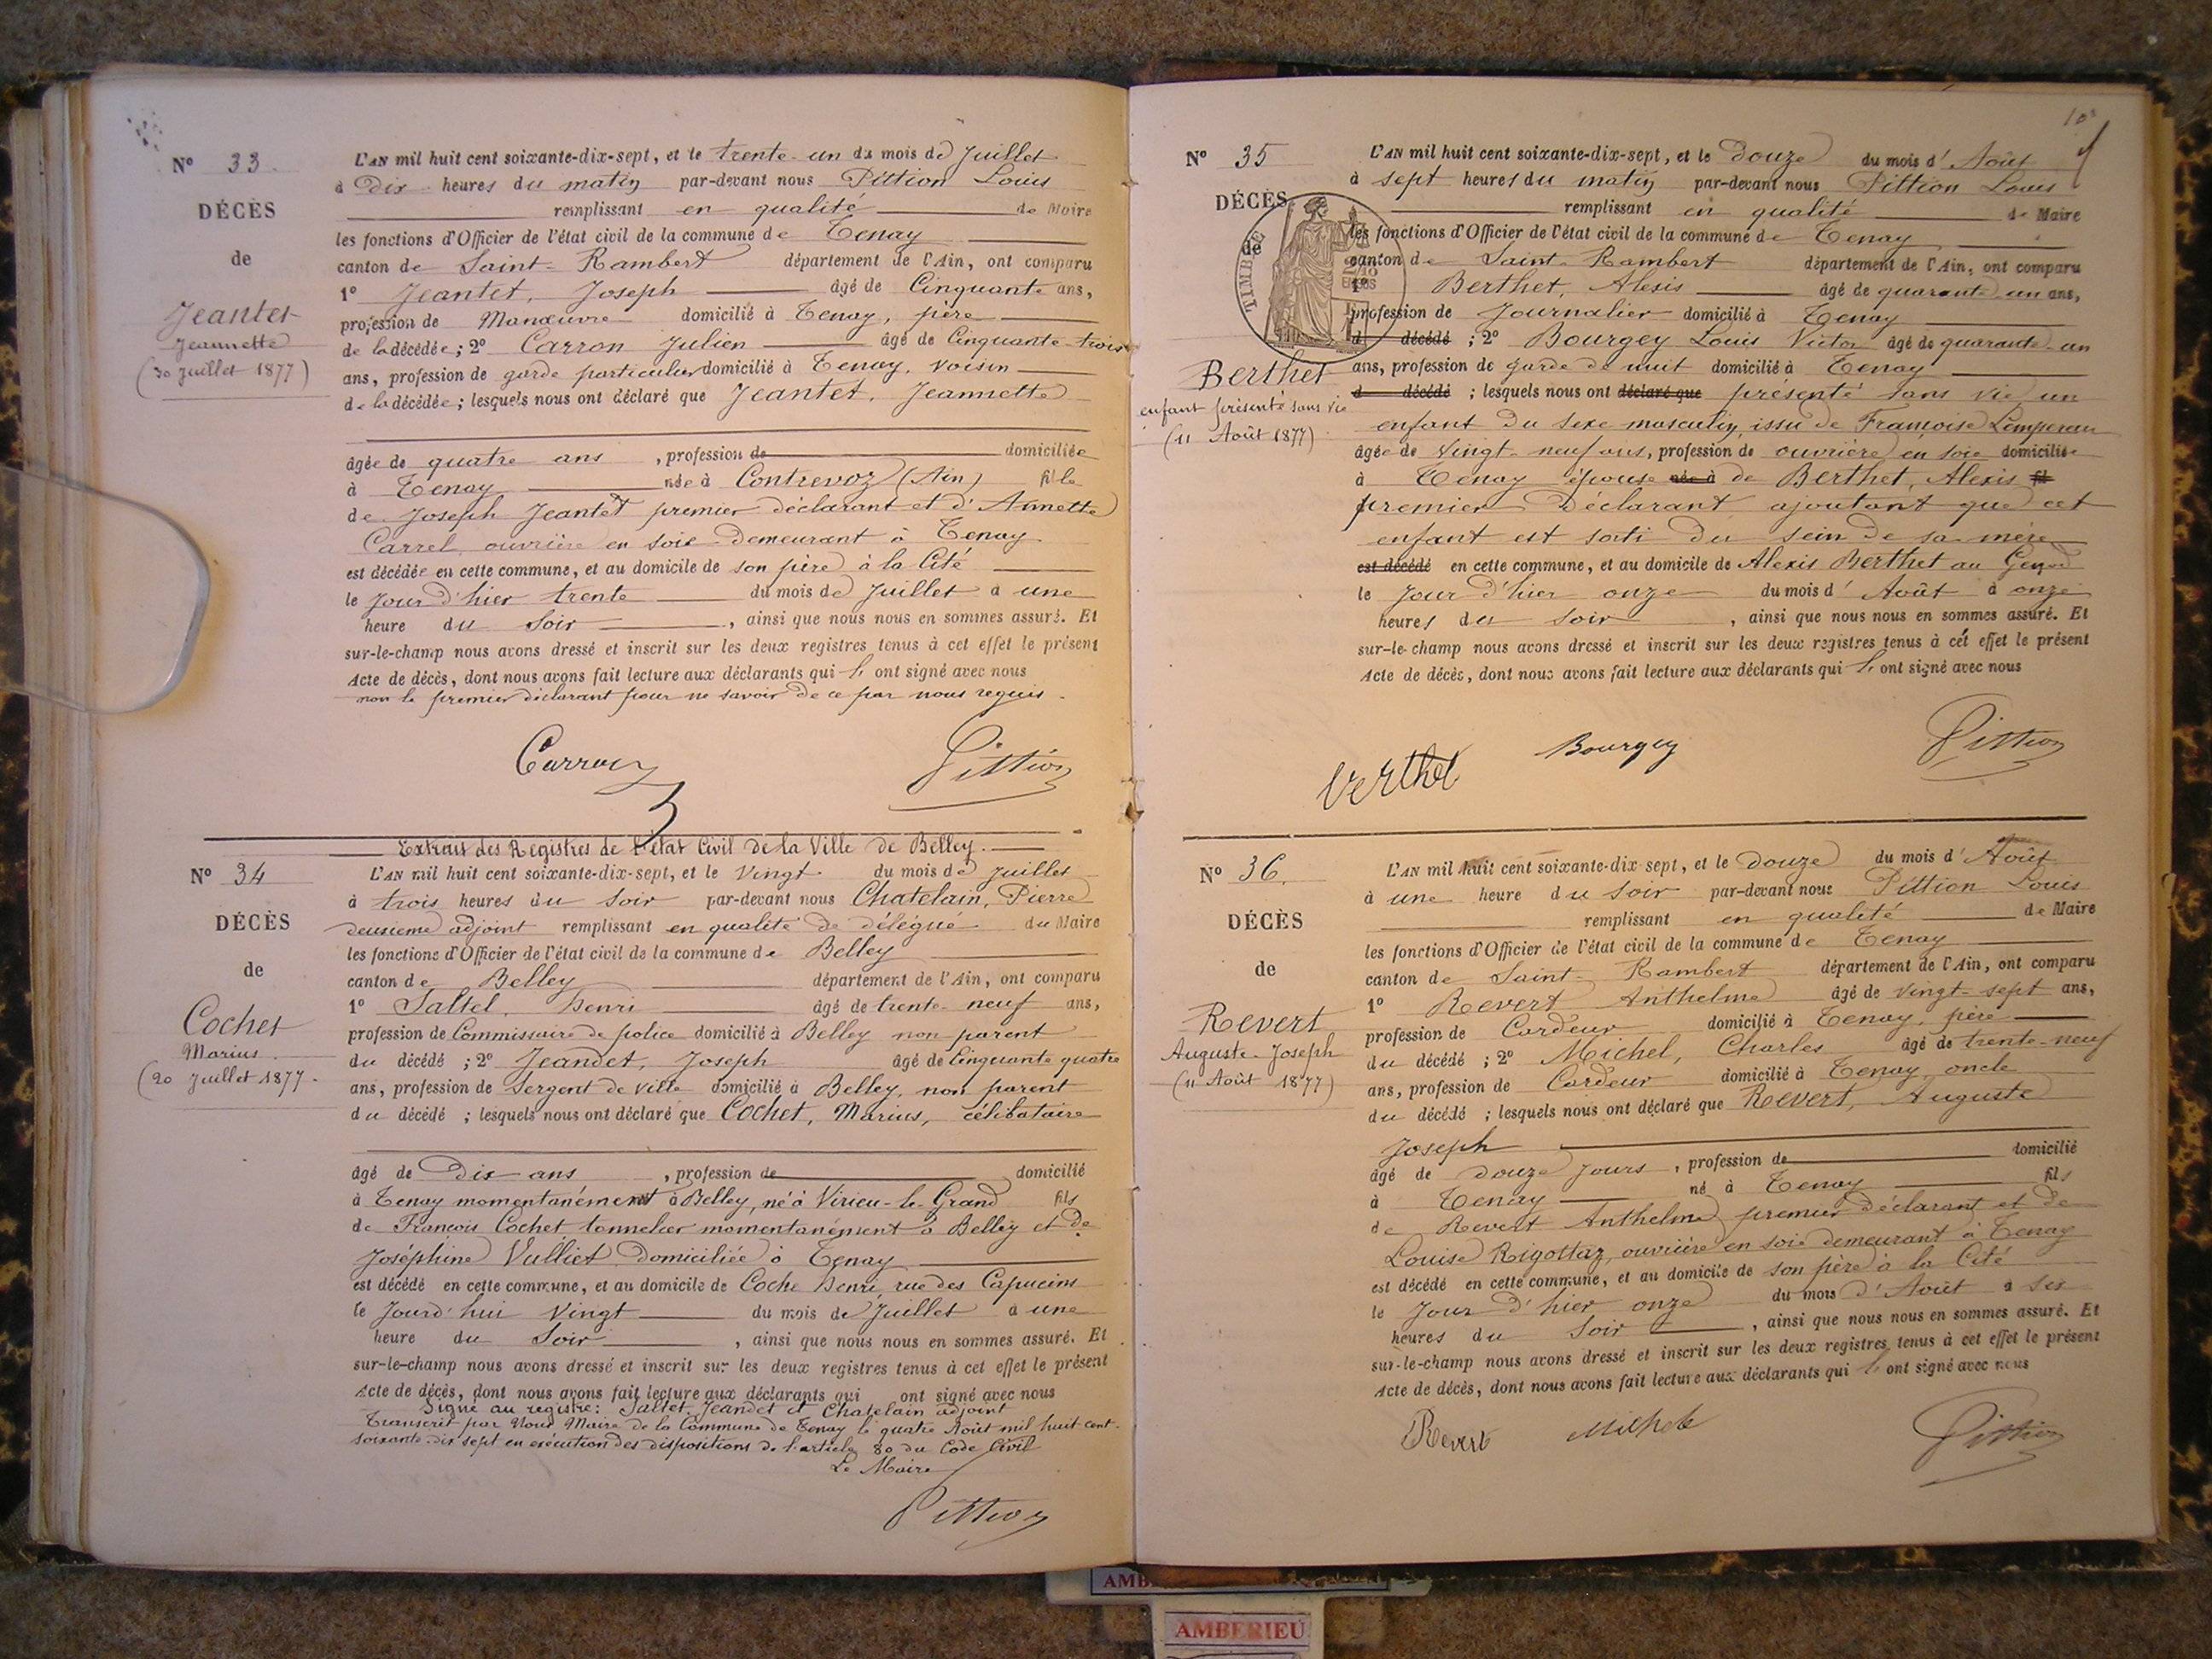 N° 33.
DÉCÈS
de
Jeantet
Jeannette
(30 Juillet 1877)
L'AN mil huit cent soixante-dix-sept, et le trente-un du mois de Juillet
à Dix heures du matin par-devant nous Pittion Louis
remplissant en qualité de Maire
les fonctions d'Officier de l'état civil de la commune de Tenay
canton de Saint-Rambert département de l'Ain, ont comparu
1° Jeantet, Joseph âgé de Cinquante ans,
profession de Manœuvre domicilié à Tenay, père
de la décédée; 2° Carron Julien âgé de Cinquante-trois
ans, profession de garde particulier domicilié à Tenay, voisin
de la décédée; lesquels nous ont déclaré que Jeantet, Jeannette
âgée de quatre ans, profession de domiciliée
à Tenay née à Contrevoz (Ain) fille
de Joseph Jeantet premier déclarant et d'Annette
Carrel, ouvrière en soie demeurant à Tenay
est décédée en cette commune, et au domicile de son père à la Cité
le Jour d'hier trente du mois de Juillet à une
heure du Soir, ainsi que nous nous en sommes assuré. Et
sur-le-champ nous avons dressé et inscrit sur les deux registres tenus à cet effet le présent
Acte de décès, dont nous avons fait lecture aux déclarants qui l' ont signé avec nous
non le premier déclarant pour ne savoir de ce par nous requis.
Carron
Pittion
Extrait des Registres de l'état Civil de la Ville de Belley.
N° 34
DÉCÈS
de
Cochet
Marius
(20 Juillet 1877.
L'AN mil huit cent soixante-dix-sept, et le Vingt du mois de Juillet
à trois heures du Soir par-devant nous Chatelain, Pierre
deuxième adjoint remplissant en qualité de délégué du Maire
les fonctions d'Officier de l'état civil de la commune de Belley
canton de Belley département de l'Ain, ont comparu
1° Saltel, Henri âgé de trente-neuf ans,
profession de Commissaire de police domicilié à Belley non parent
du décédé; 2° Jeandet, Joseph âgé de Cinquante quatre
ans, profession de Sergent de ville domicilié à Belley, non parent
du décédé; lesquels nous ont déclaré que Cochet, Marius, célibataire
âgé de Dix ans, profession de domicilié
à Tenay momentanément à Belley, né à Virieu-le-Grand fils
de François Cochet tonnelier momentanément à Belley et de
Joséphine Vulliet domiciliée à Tenay
est décédé en cette commune, et au domicile de Coche Henri, rue des Capucins
le Jourd'hui Vingt du mois de Juillet à une
heure du Soir, ainsi que nous nous en sommes assuré. Et
sur-le-champ nous avons dressé et inscrit sur les deux registres tenus à cet effet le présent
Acte de décès, dont nous avons fait lecture aux déclarants qui ont signé avec nous
Signé au registre: Saltet, Jeandet et Chatelain adjoint
Transcrit par Nous Maire de la Commune de Tenay le quatre Août mil huit cent
soixante-dix sept en exécution des dispositions de l'article 80 du Code Civil
Le Maire
Pittion
N° 35
DÉCÈS
de
TIMBRE
Berthet
enfant présenté sans vie
(11 Août 1877)
L'AN mil huit cent soixante-dix-sept, et le Douze du mois d'Août
à sept heures du matin par-devant nous Pittion Louis
remplissant en qualité de Maire
les fonctions d'Officier de l'état civil de la commune de Tenay
canton de Saint-Rambert département de l'Ain, ont comparu
1° Berthet, Alexis âgé de quarante-un ans,
profession de Journalier domicilié à Tenay
d décédé; 2° Bourgey Louis Victor âgé de quarante-un
ans, profession de garde de nuit domicilié à Tenay
d décédé; lesquels nous ont déclaré que présenté sans vie un
enfant du sexe masculin, issu de Françoise
âgée de Vingt-neuf ans, profession de ouvrière en soie domiciliée
à Tenay épouse née à de Berthet, Alexis fil
premier déclarant ajoutant que cet
enfant est sorti du sein de sa mère
est décédé en cette commune, et au domicile de Alexis Berthet au
le Jour d'hier onze du mois d'Août à onze
heures du soir, ainsi que nous nous en sommes assuré. Et
sur-le-champ nous avons dressé et inscrit sur les deux registres tenus à cet effet le présent
Acte de décès, dont nous avons fait lecture aux déclarants qui l' ont signé avec nous
Verthet
Bourgey
Pittion
N° 36.
DÉCÈS
de
Revert
Auguste-Joseph
(11 Août 1877)
L'AN mil huit cent soixante-dix-sept, et le Douze du mois d'Août
à une heure du soir par-devant nous Pittion Louis
remplissant en qualité de Maire
les fonctions d'Officier de l'état civil de la commune de Tenay
canton de Saint-Rambert département de l'Ain, ont comparu
1° Revert Anthelme âgé de vingt-sept ans,
profession de Cardeur domicilié à Tenay, père
du décédé; 2° Michel, Charles âgé de trente-neuf
ans, profession de Cardeur domicilié à Tenay, oncle
du décédé; lesquels nous ont déclaré que Revert, Auguste
Joseph
âgé de douze Jours, profession de domicilié
à Tenay né à Tenay fils
de Revert Anthelme premier déclarant et de
Louise Rigottaz, ouvrière en soie demeurant à Tenay
est décédé en cette commune, et au domicile de son père à la Cité
le Jour d'hier onze du mois d'Août à six
heures du Soir, ainsi que nous nous en sommes assuré. Et
sur-le-champ nous avons dressé et inscrit sur les deux registres tenus à cet effet le présent
Acte de décès, dont nous avons fait lecture aux déclarants qui l' ont signé avec nous
Revert
Pittion
AMBERIEU